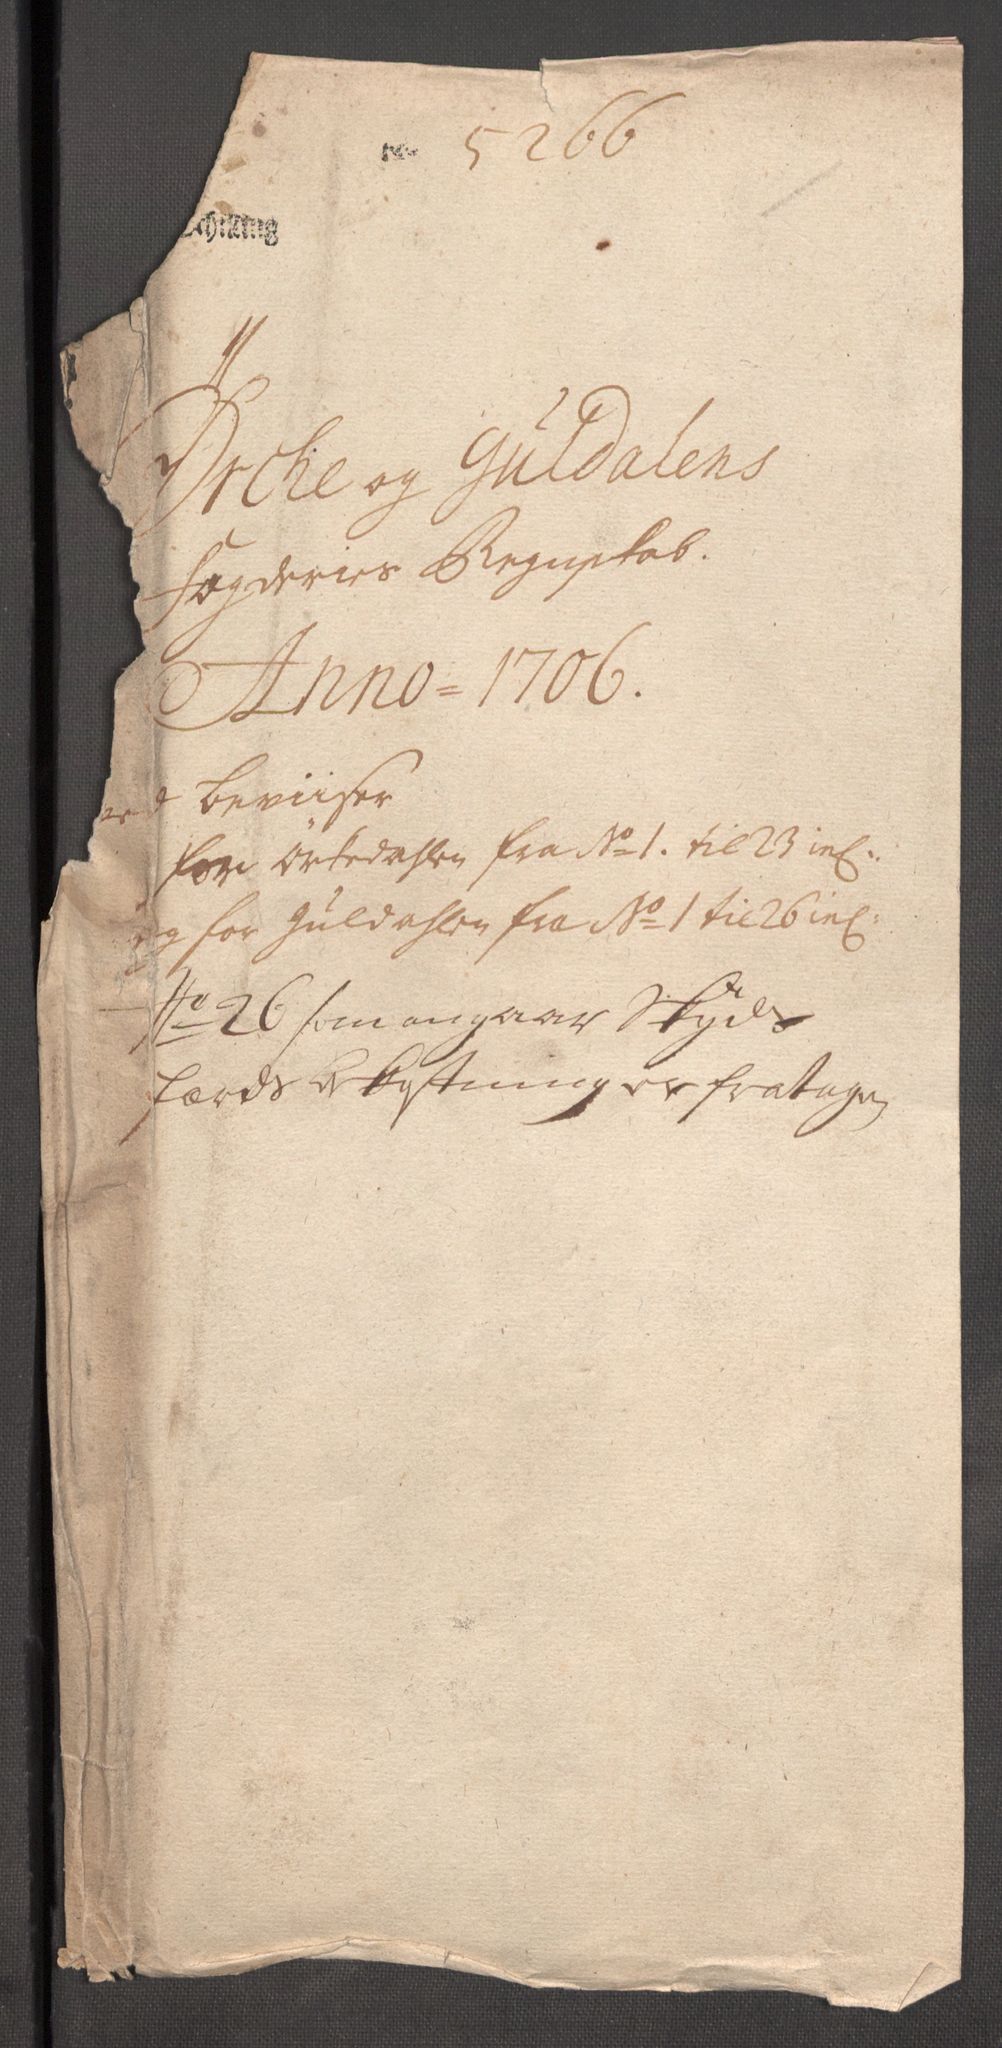 5266
Schilling
Orche og Guldalens
fogderies Regnskab.
Anno = 1706.
Beviiser
for Örkedahlen fra No 1. til 23 incl:
og for Guldahlen fra No 1 til 26 incl:
No 26 som angaar Skyds
færds bekostning er fratagen